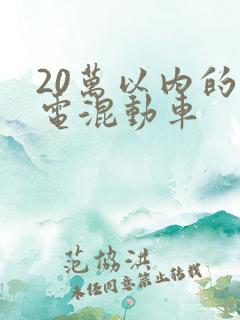 20萬以內的
電混動車
范協洪
未经同意禁止转载